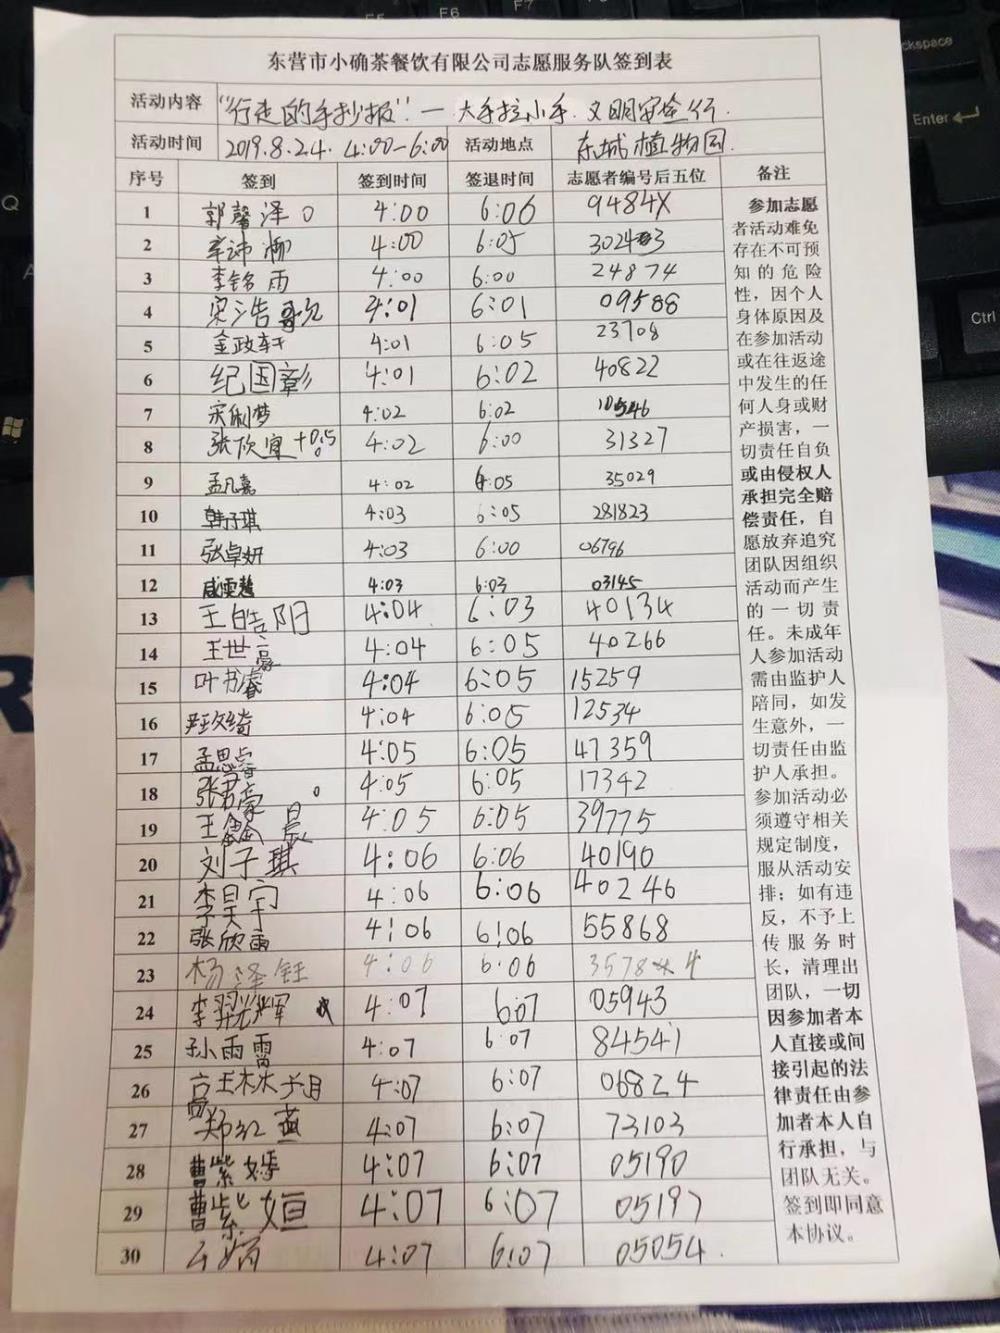 东营市小确茶餐饮有限公司志愿服务队签到表
活动内容 "行走的手抄报"—大手拉小手.文明安全行.
活动时间 2019.8.24. 4:00-6:00 活动地点 东城植物园.
序号 签到 签到时间 签退时间 志愿者编号后五位 备注
1 郭馨泽 4:00 6:06 9484X
2 4:00 6:05
3 李铭雨 4:00 6:00 24874
4 宋浩 4:01 6:01 09588
5 金政轩 4:01 6:05 23708
6 纪国彰 4:01 6:02 40822
7 宋俐梦 4:02 6:02 10546
8 张欣宜 +0.5 4:02 6:00 31327
9 孟凡嘉 4:02 6:05 35029
10 韩子琪 4:03 6:05 281823
11 张卓妍 4:03 6:00 06796
12 咸雯慧 4:03 6:03 03145
13 王皓阳 4:04 6:03 40134
14 王世豪 4:04 6:05 40266
15 叶书睿 4:04 6:05 15259
16 4:04 6:05 12534
17 孟思睿 4:05 6:05 47359
18 张君豪 4:05 6:05 17342
19 王鑫晨 4:05 6:05 39775
20 刘子琪 4:06 6:06 40190
21 李昊宇 4:06 6:06 40246
22 张欣雨 4:06 6:06 55868
23 杨泽钰 4:06 6:06
24 李羿辉 4:07 6:07 05943
25 孙雨霄 4:07 6:07 84541
26 4:07 6:07 06824
27 郑红燕 4:07 6:07 73103
28 曹紫嫣 4:07 6:07 05190
29 曹紫姮 4:07 6:07 05197
30 4:07 6:07 05054.
参加志愿
者活动难免
存在不可预
知的危险
性，因个人
身体原因及
在参加活动
或在往返途
中发生的任
何人身或财
产损害，一
切责任自负
或由侵权人
承担完全赔
偿责任，自
愿放弃追究
团队因组织
活动而产生
的一切责
任。未成年
人参加活动
需由监护人
陪同，如发
生意外，一
切责任由监
护人承担。
参加活动必
须遵守相关
规定制度，
服从活动安
排；如有违
反，不予上
传服务时
长，清理出
团队，一切
因参加者本
人直接或间
接引起的法
律责任由参
加者本人自
行承担，与
团队无关。
签到即同意
本协议。
F6
F7
Enter
Ctrl
Q